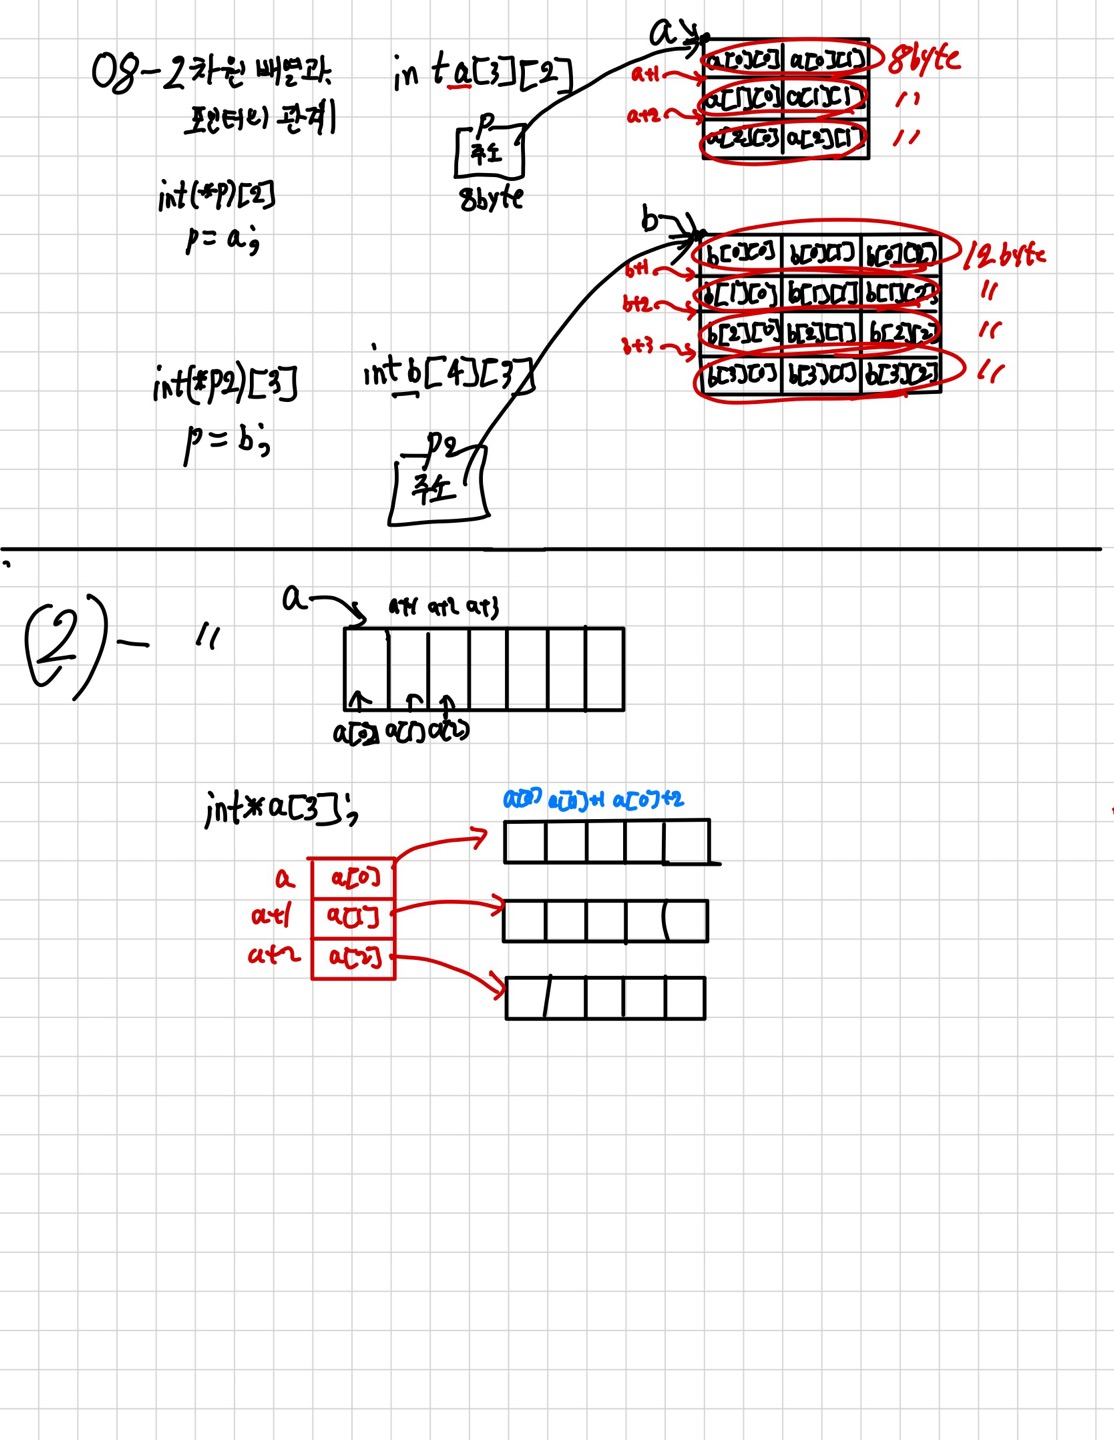 08-2차원 배열과
포인터의 관계
int a[3][2]
p
주소
8byte
int(*p)[2]
p = a;
a
a+1
a+2
a[0][0] a[0][1] 8byte
a[1][0] a[1][1] "
a[2][0] a[2][1] "
b
b+1
b+2
b+3
b[0][0] b[0][1] b[0][2] 12byte
b[1][0] b[1][1] b[1][2] "
b[2][0] b[2][1] b[2][2] "
b[3][0] b[3][1] b[3][2] "
int b[4][3]
int(*p2)[3]
p = b;
p2
주소
(2) - "
a
a+1 a+2 a+3
a[0] a[1] a[2]
int*a[3];
a[0] a[0]+1 a[0]+2
a a[0]
a+1 a[1]
a+2 a[2]